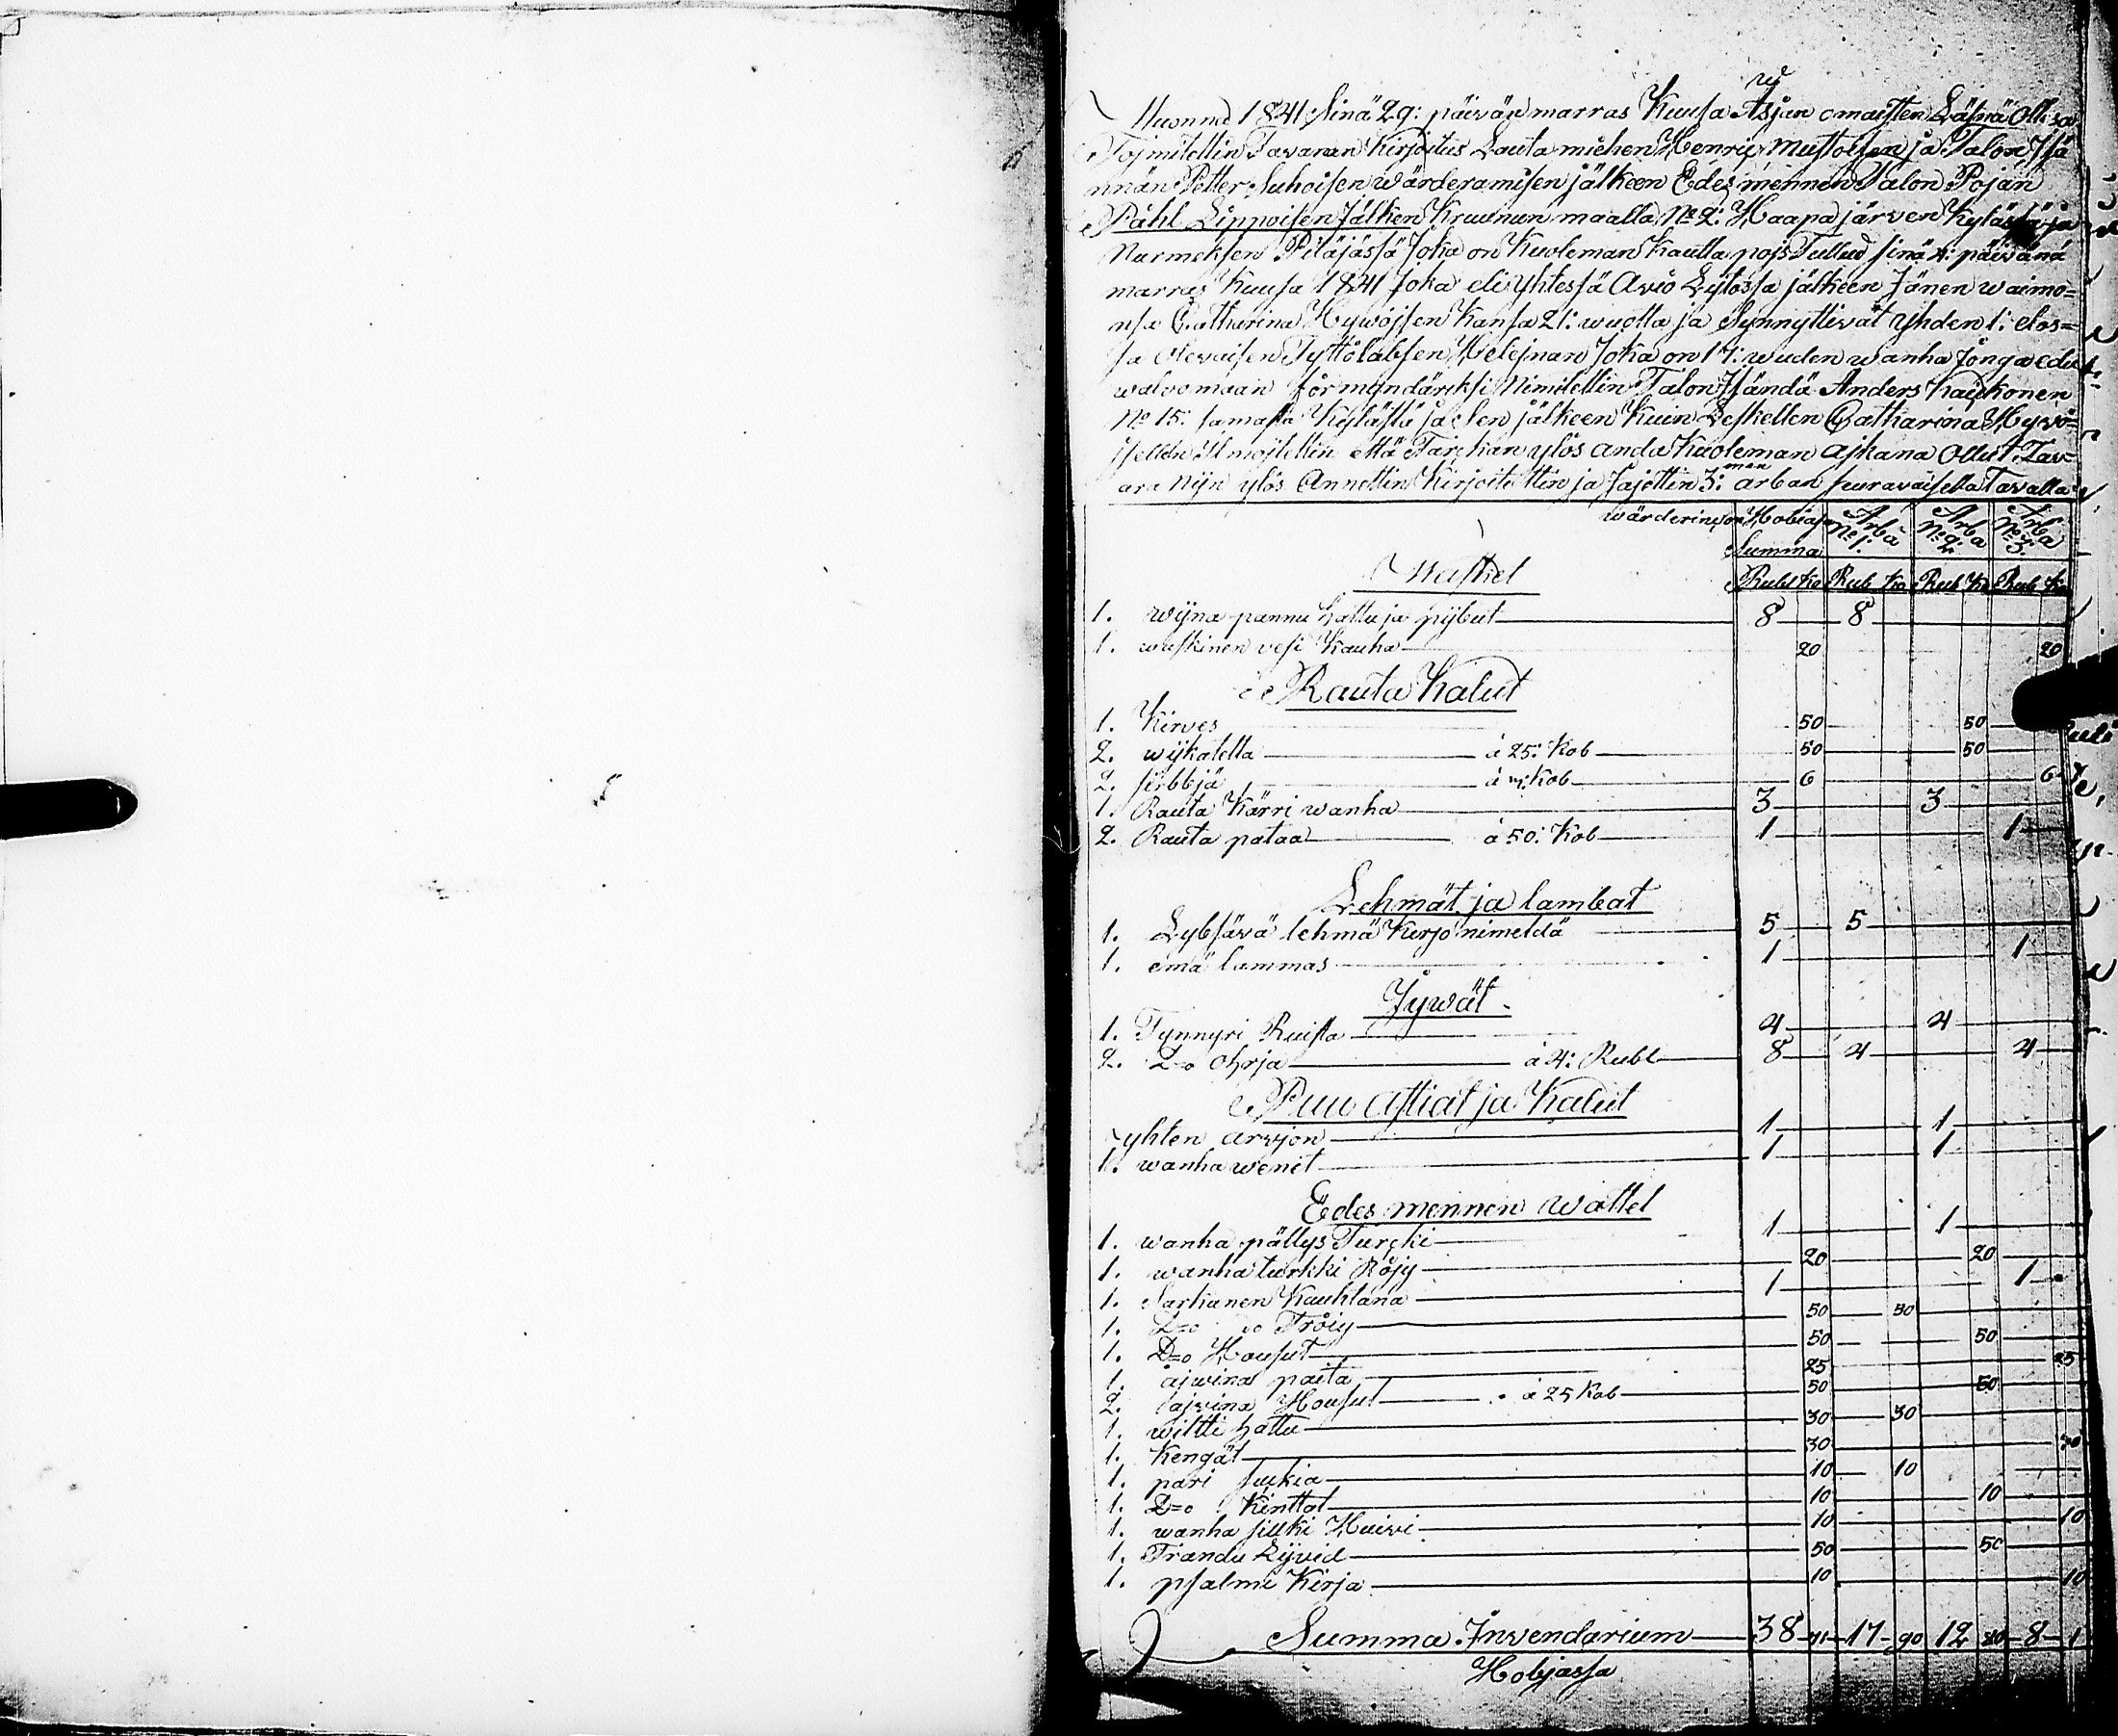 Wuonna 1841 Sinä 29: päivän marras Kuusa Asjan omaisten Läsnä Ollesa
Tojmitettin Tavaran Kirjoitus Lauta miehen Henric Mustoisen ja Talon Isä
nnän Petter Suhoisen wärderamisen jälkeen Edes mennen Talon Pojan
Påhl Lippoisen Jälken Kruunun maalla No 2: Haapa järven Kylässä ja
Nurmeksen Pitäjässä Joka on Kuoleman Kautta pojs Tullud sinä 4: päivänä
marras Kuusa 1841 Joka eli yhtessä Avio Lytossa jälkeen Jänen waimo=
nsa Catharina Hywöjsen Kansa 21: wuotta ja Synnyttivät yhden 1: elos=
sa olevaisen Tyttölabsen Helejnan Joka on 17: wuden wanha Jonga edu
walvomaan förmyndäreksi Nimitettin Talon Isändä Anders Kaukonen
No 15: samasta Kylästä ja Sen jälkeen Kuin Leskellen Catharina Hyvö=
sellen Ilmojtettin että Tarckan ylös anda Kuoleman ajkana Ollut Tav=
ara Nijn ylös Annettin Kirjoitettin ja Jajettin 3: man arban seuravaisella Tavalla
wärderingon Hobiasa Summa Arba No 1: Arba No 2: Arba No 3:
Wasket Rubl Ko Rub Ko Rub Ko Rub Ko
1. wijna pannu hattu ja pijbut 8 8
1. waskinen vesi Kauha 20 20
Rauta Kalut
1. Kirves 50 50
2. wijkatetta à 25: Kob 50 50
2. sirbbjä à Kob 6 6
1. Rauta Kärri wanha 3 3
2. Rauta pataa à 50: Kob 1 1
Lehmät ja lambat
1. Lybsävä lehmä Kirjo nimeldä 5 5
1. emä lammas 1 1
Jywät
1. Tynnyri Ruista 4 4
2. D=o Ohrja à 4: Rubl 8 4 4
Puu Astiat ja Kalut
yhten arvjon 1 1
1. wanha wenet 1 1
Edes mennen wattet
1. wanha pällys Turcki 1 1
1. wanha turkki Röjy 20 20
1. Sarkanen Kauhtana 1 1
1. D=o Tröiy 50 50
1. D=o Housut 50 50
1. ajwina paita 25 25
2. ajvina Housut à 25 Kob 50 50
1. wiltti hattu 30 30
1. Kengät 30 30
1. pari suckia 10 10
1. D=o Kinttat 10 10
1. wanha silki Huivi 10 10
1. Trandu Lijvid 50 50
1. psalmi Kirja 10 10
Summa Invendarium 38 71 17 90 12 80 8 1
Hobjassa